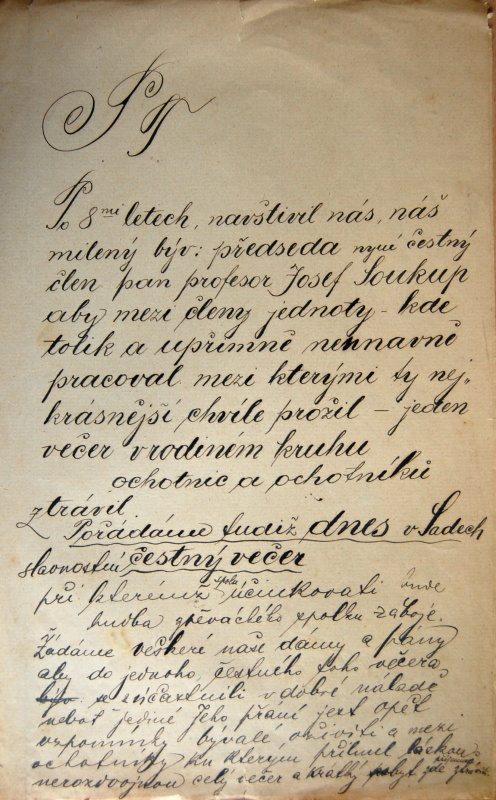 P T
Po 8mi letech, navštívil nás, náš
milený býv: předseda nyní čestný
člen pan profesor Josef Soukup
aby mezi členy jednoty - kde
tolik a upřímně neunavně
pracoval mezi kterými ty nej„
krásnější chvíle prožil – jeden
večer v rodiném kruhu
ochotnic a ochotníků
ztrávil.
Pořádáme tudiž dnes v Sadech
slavnostní čestný večer
při kterémž spolu účinkovati bude
hudba zpěváckého spolku Záboje.
Žádáme veškeré naše dámy a pány
aby do jednoho, čestného toho večera
se súčastnili v dobré náladě
neboť jediné Jeho přání jest opět
vzpomínky bývalé oživiti a mezi
ochotníky ku kterým přilnul láskou
nerozdvojnou celý večer a krátký pobyt zde